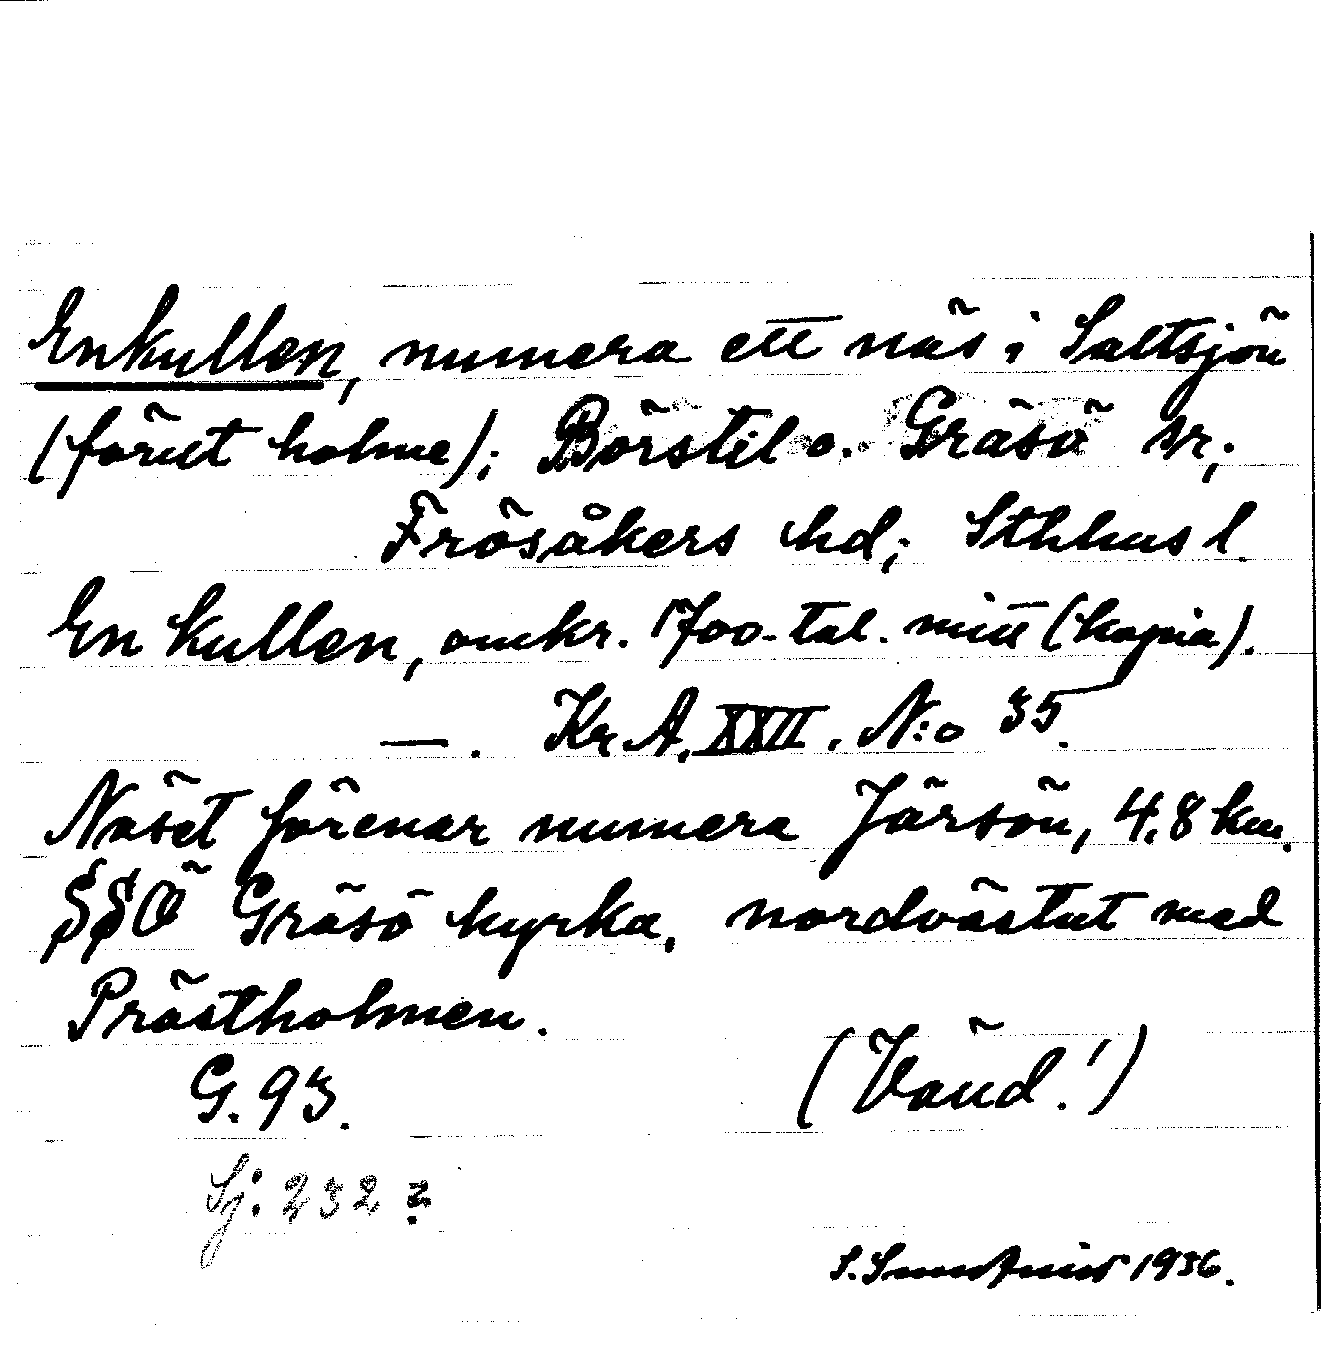 Enkullen, numera ett näs i Saltsjön
(förut holme); Börstil o. Gräsö sr;
Frösåkers hd; Sthlms l.
En kullen, omkr. 1700-tal. mitt (kopia).
—. Kr A. XXII. N:o 35.
Näset förenar numera Järsön, 4,8 km.
SSÖ Gräsö kyrka, nordvästut med
Prästholmen.
G. 93. (Vänd!)
Sj: 232 ?
S. 1936.